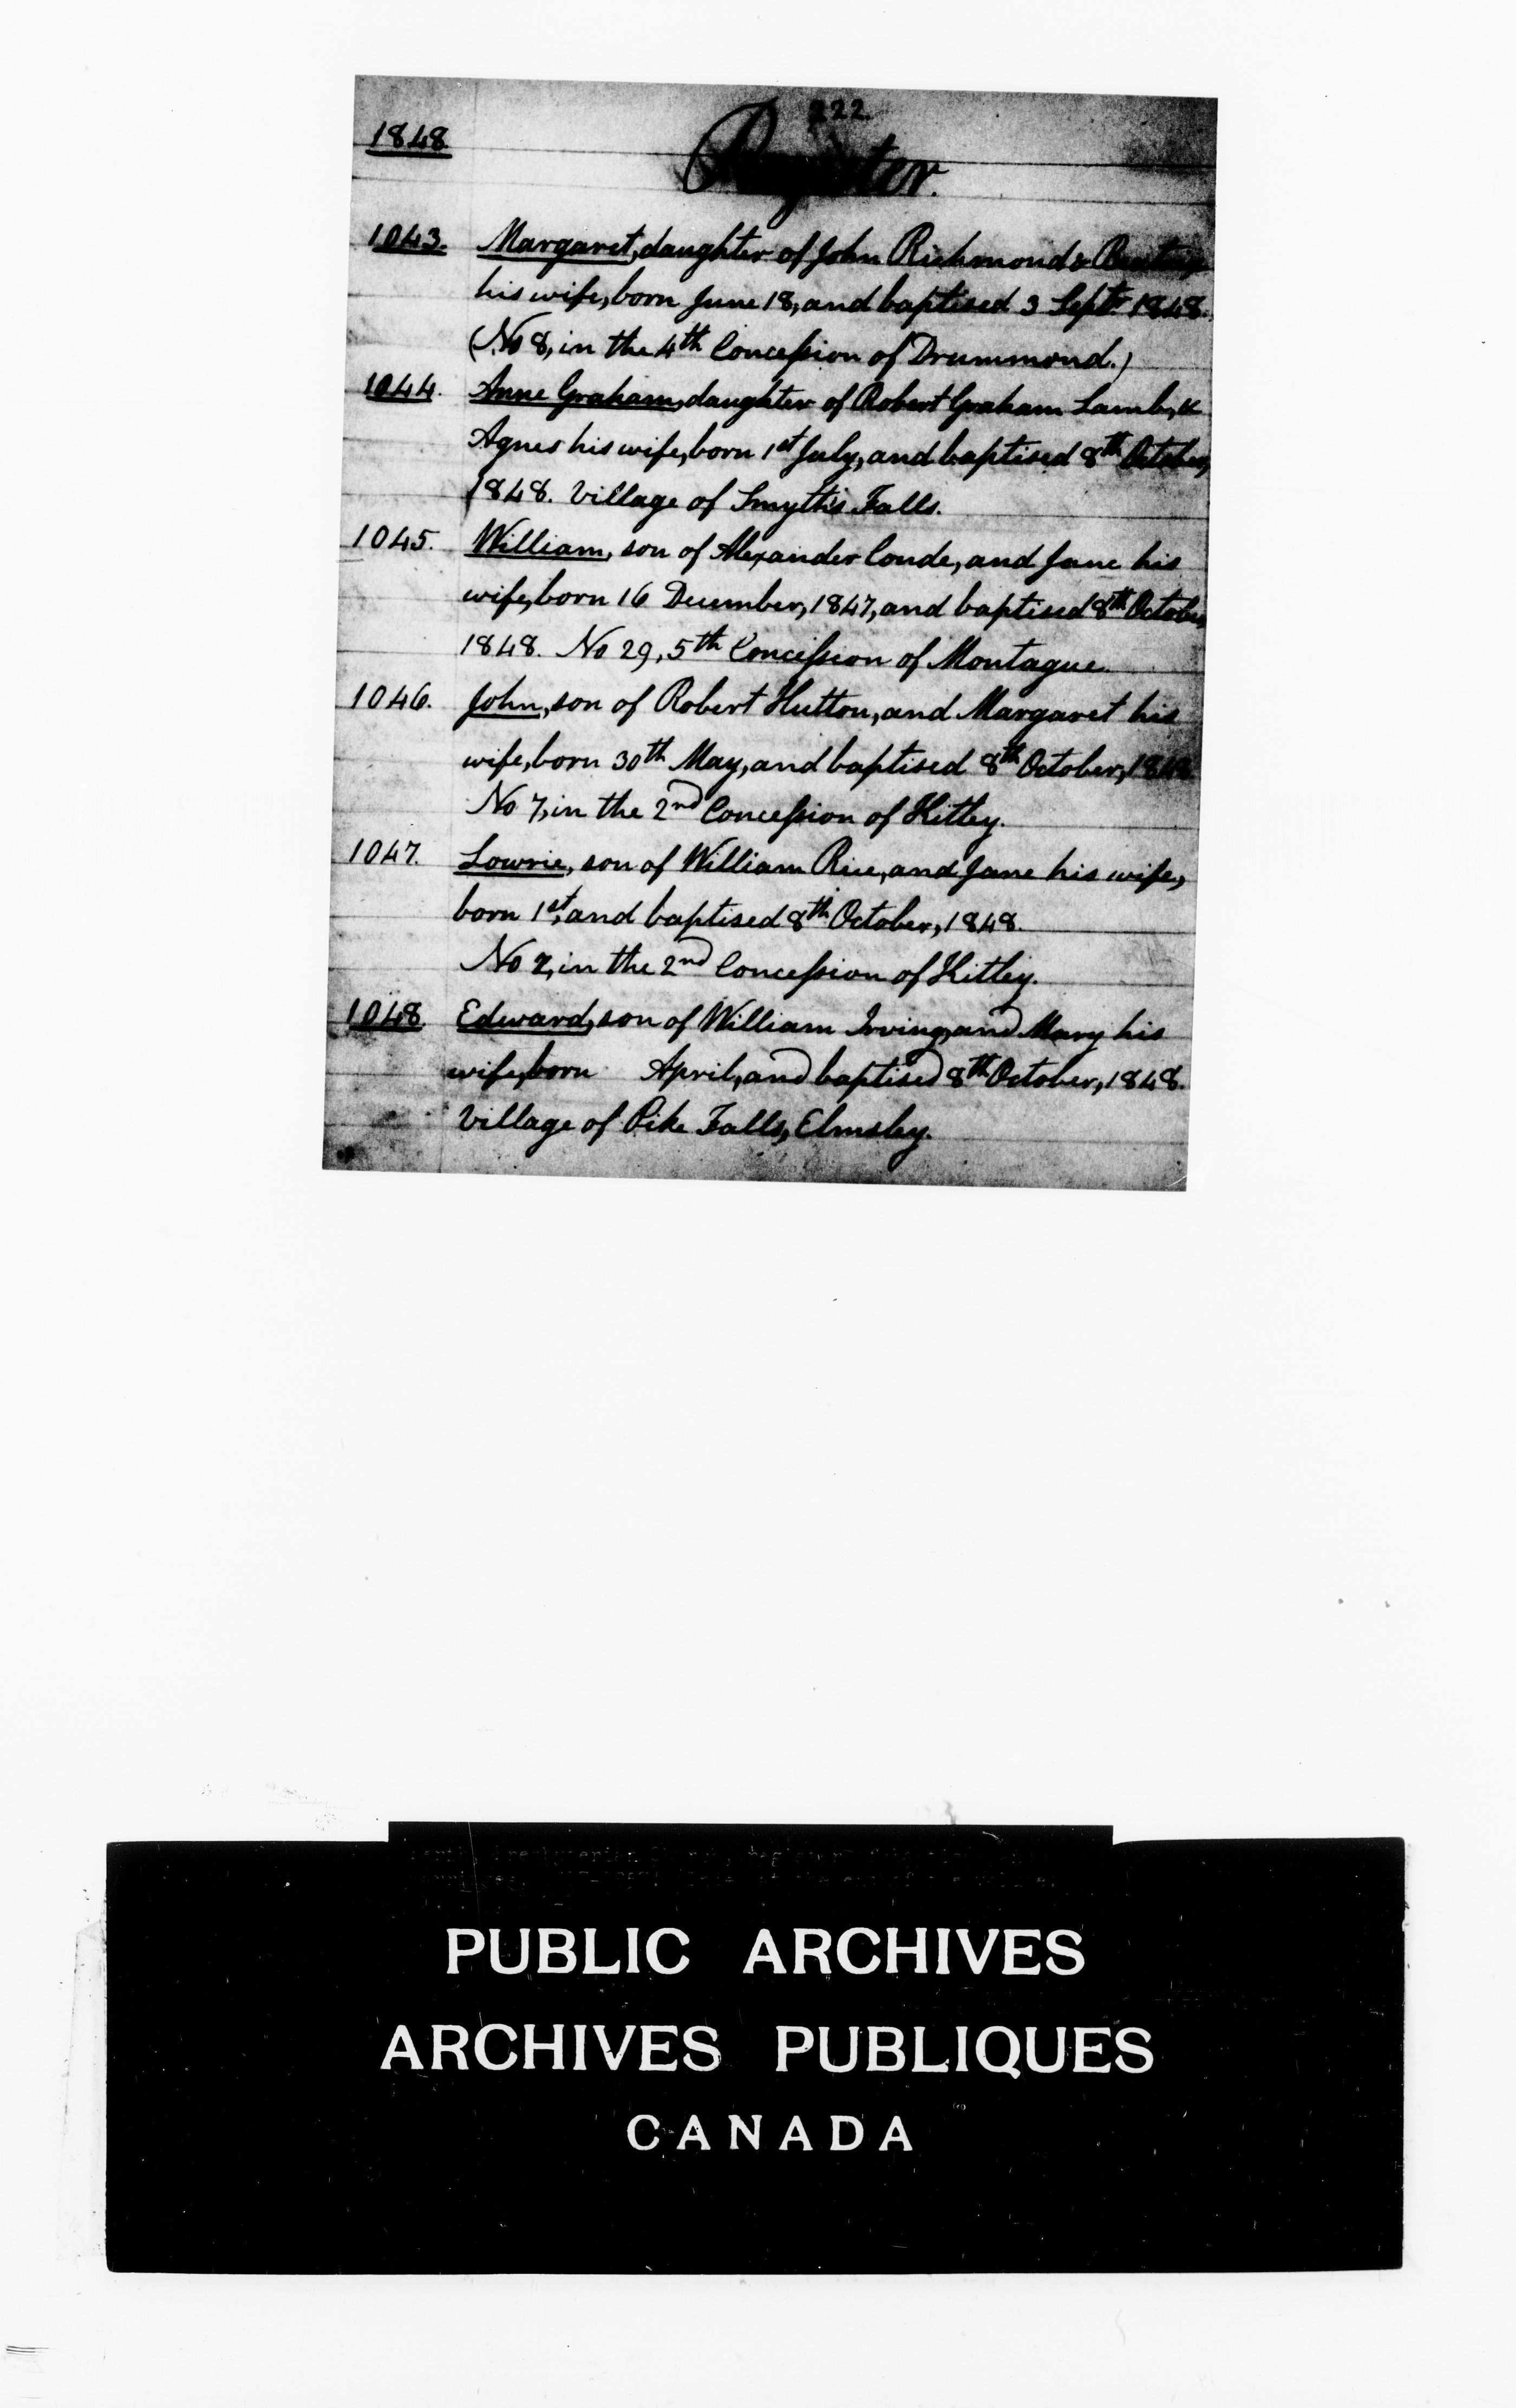 222.
1848.
Register.
1043. Margaret, daughter of John Richmond & Beatrix
his wife, born June 18, and baptised 3 Septr. 1848.
(No 8, in the 4th Concession of Drummond.)
1044. Anne Graham, daughter of Robert Graham Lamb, &
Agnes his wife, born 1st July, and baptised 8th October,
1848. Village of Smyth's Falls.
1045. William, son of Alexander Conde, and Jane his
wife, born 16 December, 1847, and baptised 8th October,
1848. No 29, 5th Concession of Montague.
1046. John, son of Robert Hutton, and Margaret his
wife, born 30th May, and baptised 8th October, 1848.
No 7, in the 2nd Concession of Kitley.
1047. Lowrie, son of William Rice, and Jane his wife,
born 1st, and baptised 8th October, 1848.
No in the 2nd Concession of Kitley.
1048. Edward, son of William Irving, and Mary his
wife, born April, and baptised 8th October, 1848.
Village of Pike Falls, Elmsley.
PUBLIC ARCHIVES
ARCHIVES PUBLIQUES
CANADA